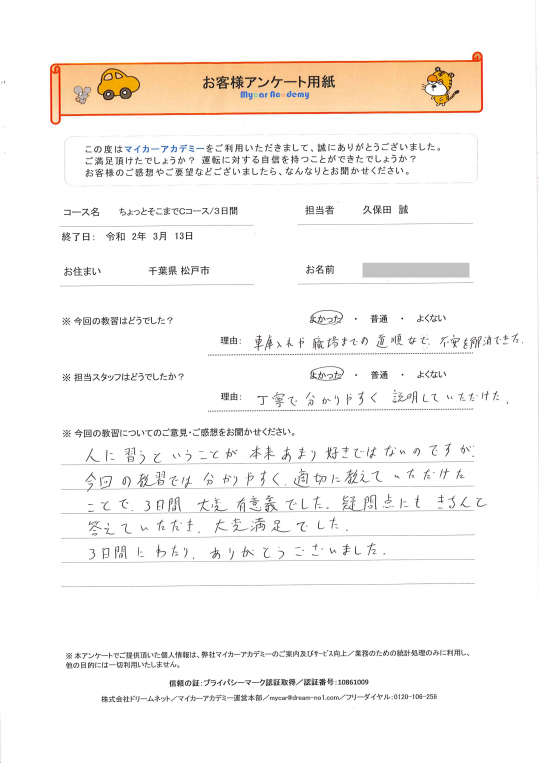 お客様アンケート用紙
Mycar Academy
この度はマイカーアカデミーをご利用いただきまして、誠にありがとうございました。
ご満足頂けたでしょうか？ 運転に対する自信を持つことができたでしょうか？
お客様のご感想やご要望などございましたら、なんなりとお聞かせください。
コース名 ちょっとそこまでCコース/3日間 担当者 久保田 誠
終了日： 令和 2年 3月 13日
お住まい 千葉県 松戸市 お名前
※ 今回の教習はどうでした？ よかった ・ 普通 ・ よくない
理由： 車庫入れや職場までの道順など、不安を解消できた.
※ 担当スタッフはどうでしたか？ よかった ・ 普通 ・ よくない
理由： 丁寧で分かりやすく説明していただけた.
※ 今回の教習についてのご意見・ご感想をお聞かせください。
人に習うということが本来あまり好きではないのですが、
今回の教習では分かりやすく、適切に教えていただけた
ことで、3日間大変有意義でした。疑問点にもきちんと
答えていただき、大変満足でした.
3日間にわたり、ありがとうございました.
※ 本アンケートでご提供頂いた個人情報は、弊社マイカーアカデミーのご案内及びサービス向上／業務のための統計処理のみに利用し、
他の目的には一切利用いたしません。
信頼の証：プライバシーマーク認証取得／認証番号：10861009
株式会社ドリームネット／マイカーアカデミー運営本部／mycar@dream-no1.com／フリーダイヤル：0120-106-256